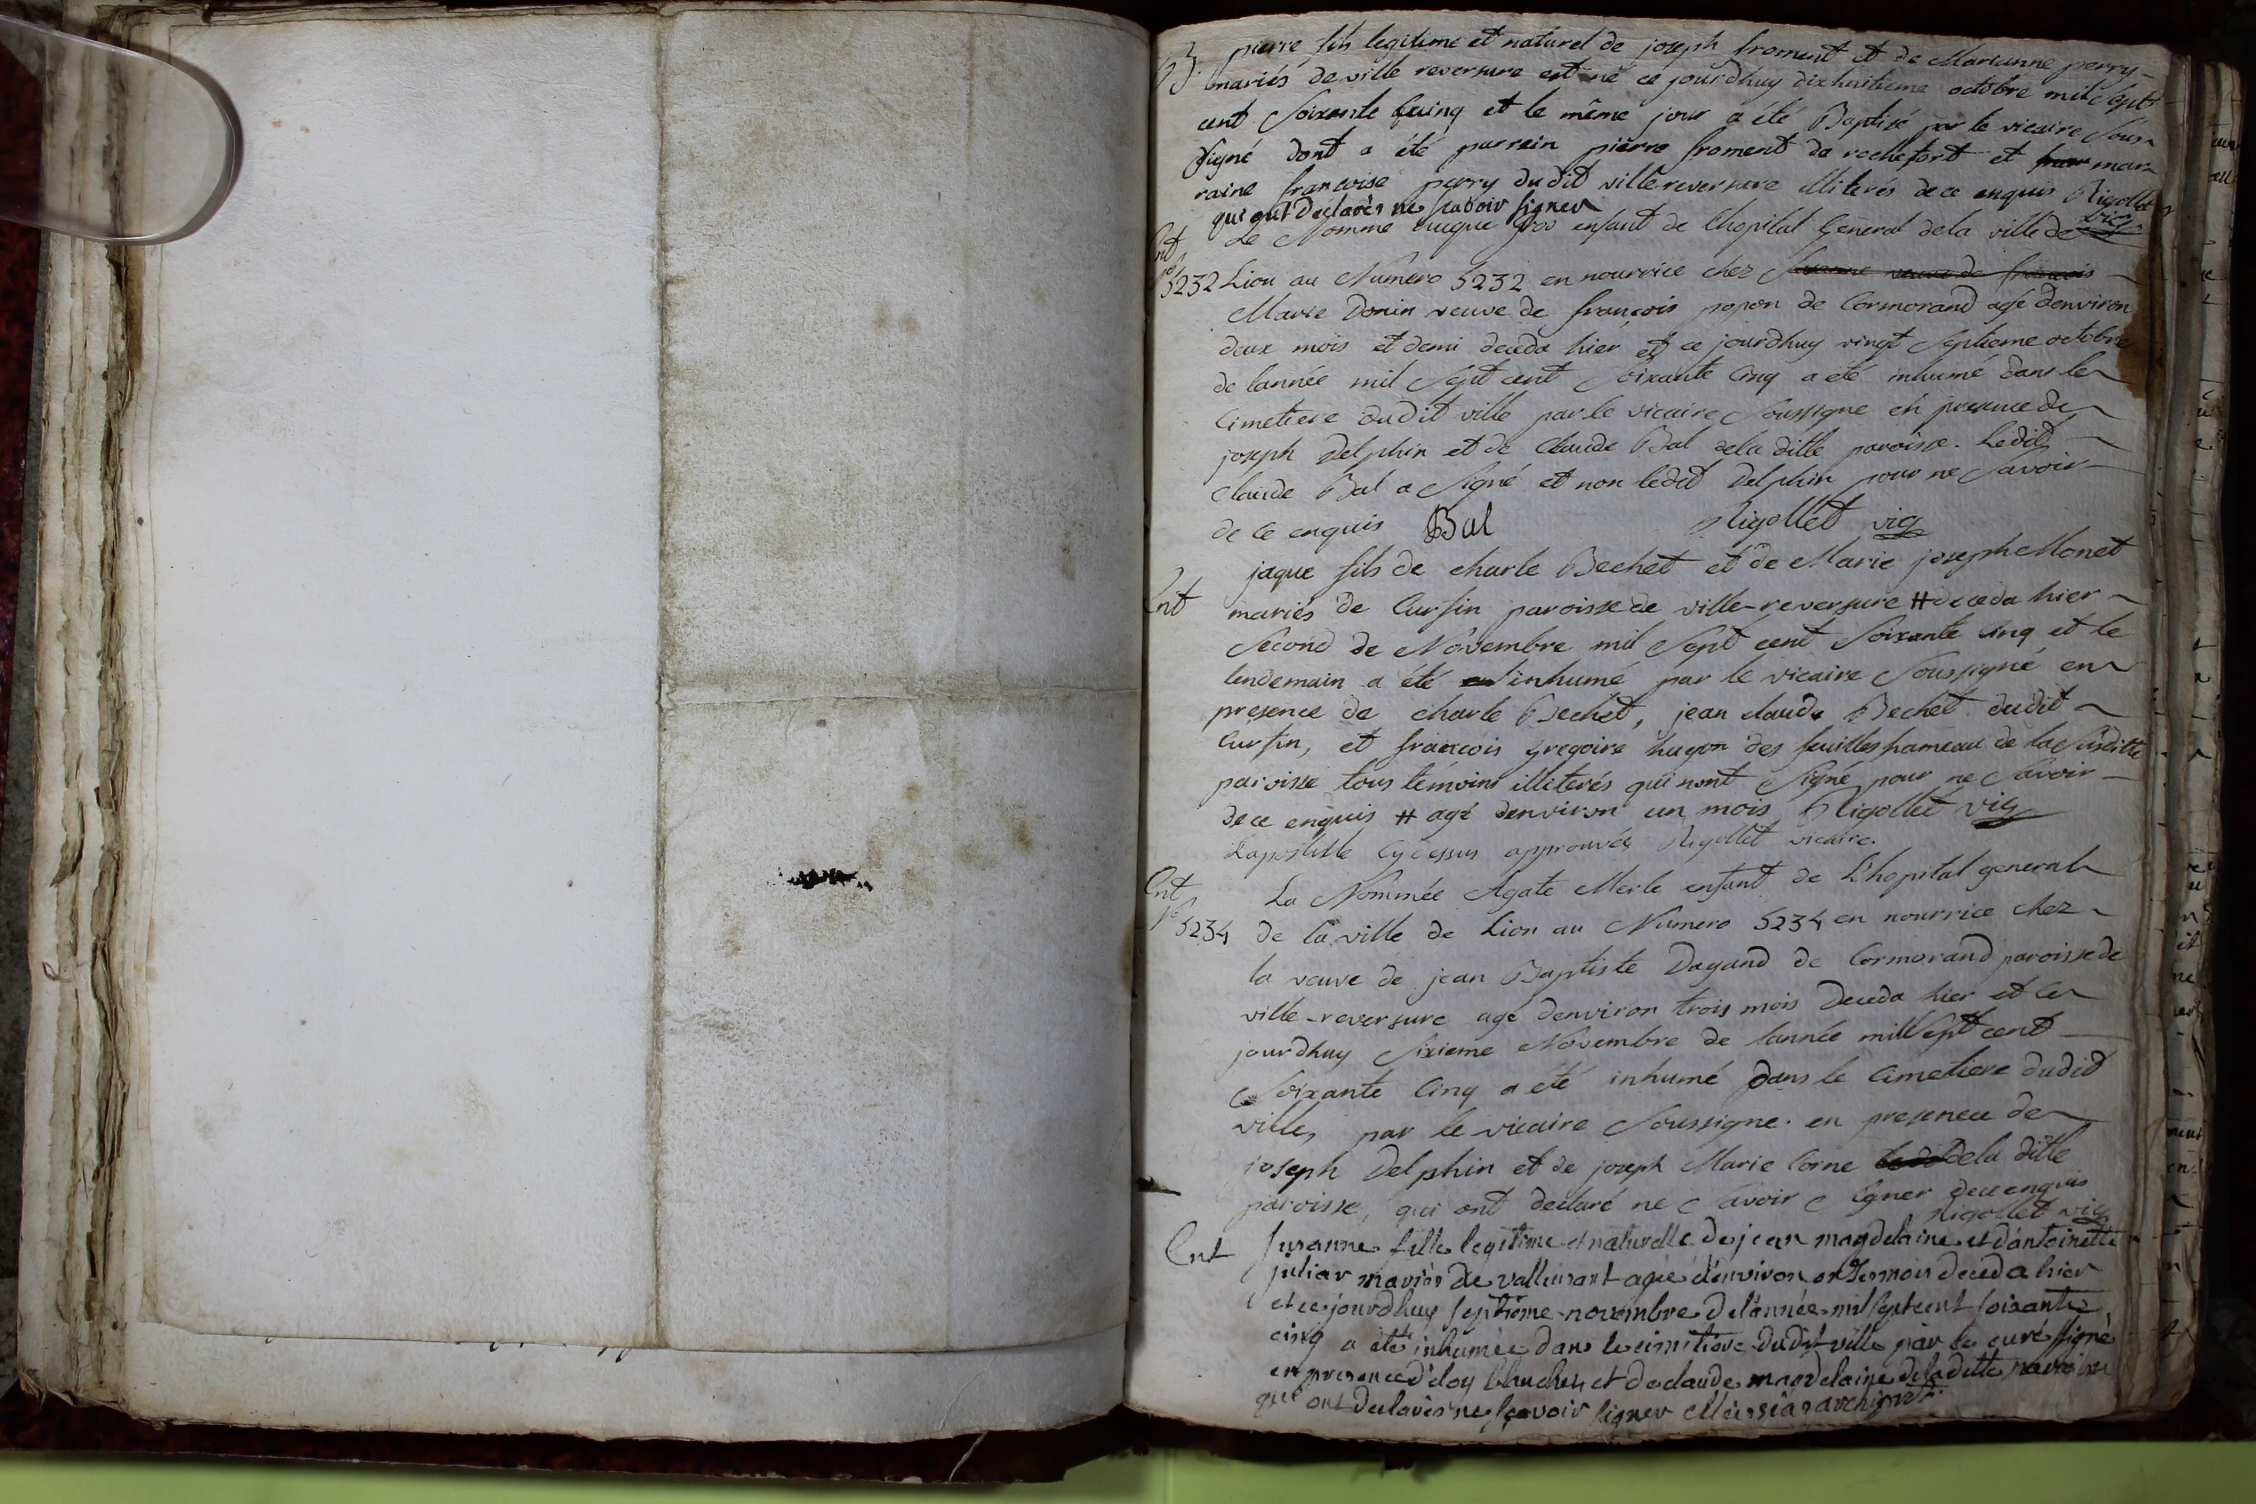 B. pierre fils legitime et naturel de joseph froment et de Marianne perry
mariés de ville reversure est né ce jourdhuy dixhuitieme octobre mil Sept
cent Soixante Cuinq et le même jour a été Baptisé par le vicaire Sous
Signé dont a été parrain pierre froment de rochefort et mar
raine francoise perry dudit ville reversure illiterés de ce enquis Rigollet
qui ont declarés ne scavoir signer vic
Ent Le Nommé huque gros enfant de lhopital General dela ville de
no 5232 Lion au Numero 5232 en nourrice chez Suzanne veuve de francois
Marie Donin veuve de francois popon de Cormorand agé denviron
deux mois et demi deceda hier et ce jourdhuy vingt Septieme octobre
de lannée mil Sept cent Soixante Cinq a été inhumé dans le
Cimetiere dudit ville par le vicaire Soussigne en presence de
joseph Delphin et de Claude Bal dela ditte paroisse. Ledit
Claude Bal a Signé et non ledit Delphin pour ne Savoir
de ce enquis Bal Rigollet vic
jaque fils de charle Bechet et de Marie joseph Monet
Ent mariés de Cursin paroisse de ville-reversure # deceda hier
Second de Novembre mil Sept cent Soixante Cinq et le
lendemain a été inhumé par le vicaire Soussigné en
presence de charle Bechet, jean claude Bechet dudit
Cursin, et francois gregoire hugon des feuilles hameau de la Susditte
paroisse tous témoins illiterés qui nont Signé pour ne Savoir
de ce enquis # agé denviron un mois Rigollet vic
Lapostille Cydessus approuvée Rigollet vicaire.
Ent La Nommée Agate Merle enfant de Lhopital general
no 5234 de la ville de Lion au Numero 5234 en nourrice chez
la veuve de jean Baptiste Dagand de Cormorand paroisse de
ville-reversure agé denviron trois mois deceda hier et ce
jourdhuy Sixieme Novembre de lannée mil Sept cent
Soixante Cinq a été inhumé dans le Cimetiere dudit
ville, par le vicaire Soussigne. en presence de
joseph Delphin et de joseph Marie Corne dela ditte
paroisse, qui ont declaré ne Savoir Signer de ce enquis
Rigollet vic
Ent Susanne fille legitime et naturelle de jean magdelaine et dantoinette
juliar mariés de vallensant agée denviron onze mois deceda hier
et ce jourdhuy septieme novembre de lannée mil sept cent soixante
cinq a été inhumée dans le cimitiere dudit ville par le curé signé
en presence d'eloy blanchet et de claude magdelaine dela ditte paroisse
qui ont declarés ne scavoir signer Messia archiprêtre